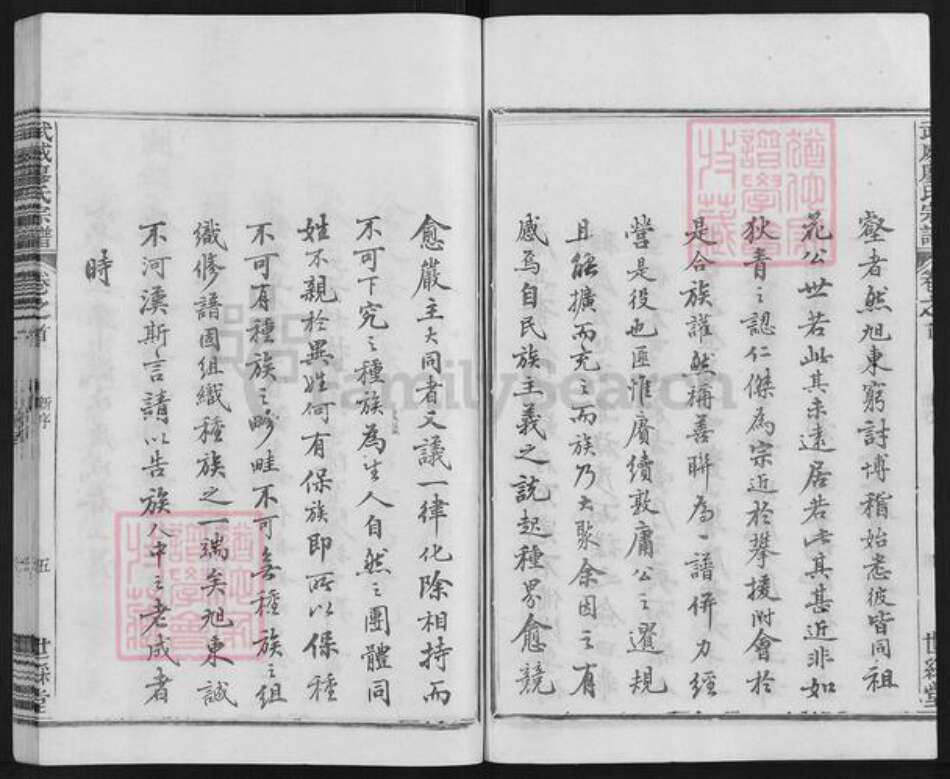 壑者然旭東窮討博稽始悉彼皆同祖
花公世若此其未遠居若此其甚近非如
狄青之認仁傑為宗近於攀援附會於
是合族讙然稱善聯為一譜併力經
營是役也匪惟賡續敦庸公之遺規
且能擴而充之而族乃大聚余因之有
感焉自民族主義之說起種界愈競
愈嚴主大同者又議一律化除相持而
不可下究之種族為生人自然之團體同
姓不親於異姓何有保族即所以保種
不可有種族之畛畦不可無種族之組
織修譜固組織種族之一端矣旭東誠
不河漢斯言請以告族人中之老成者
時
武威廖氏宗譜
卷之首
新序
五
世綵堂
FamilySearch